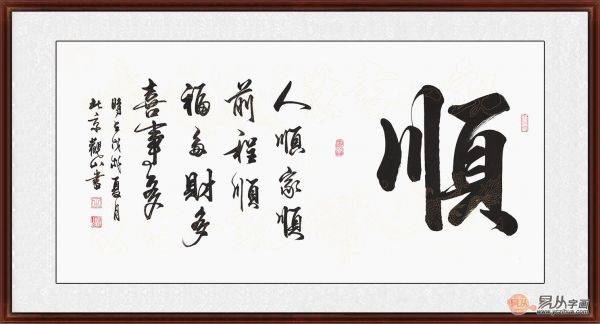 順
人順家順
前程順
福多財多
喜事多
時在戊戌夏月
北京觀山書
易从字画
www.yczihua.com